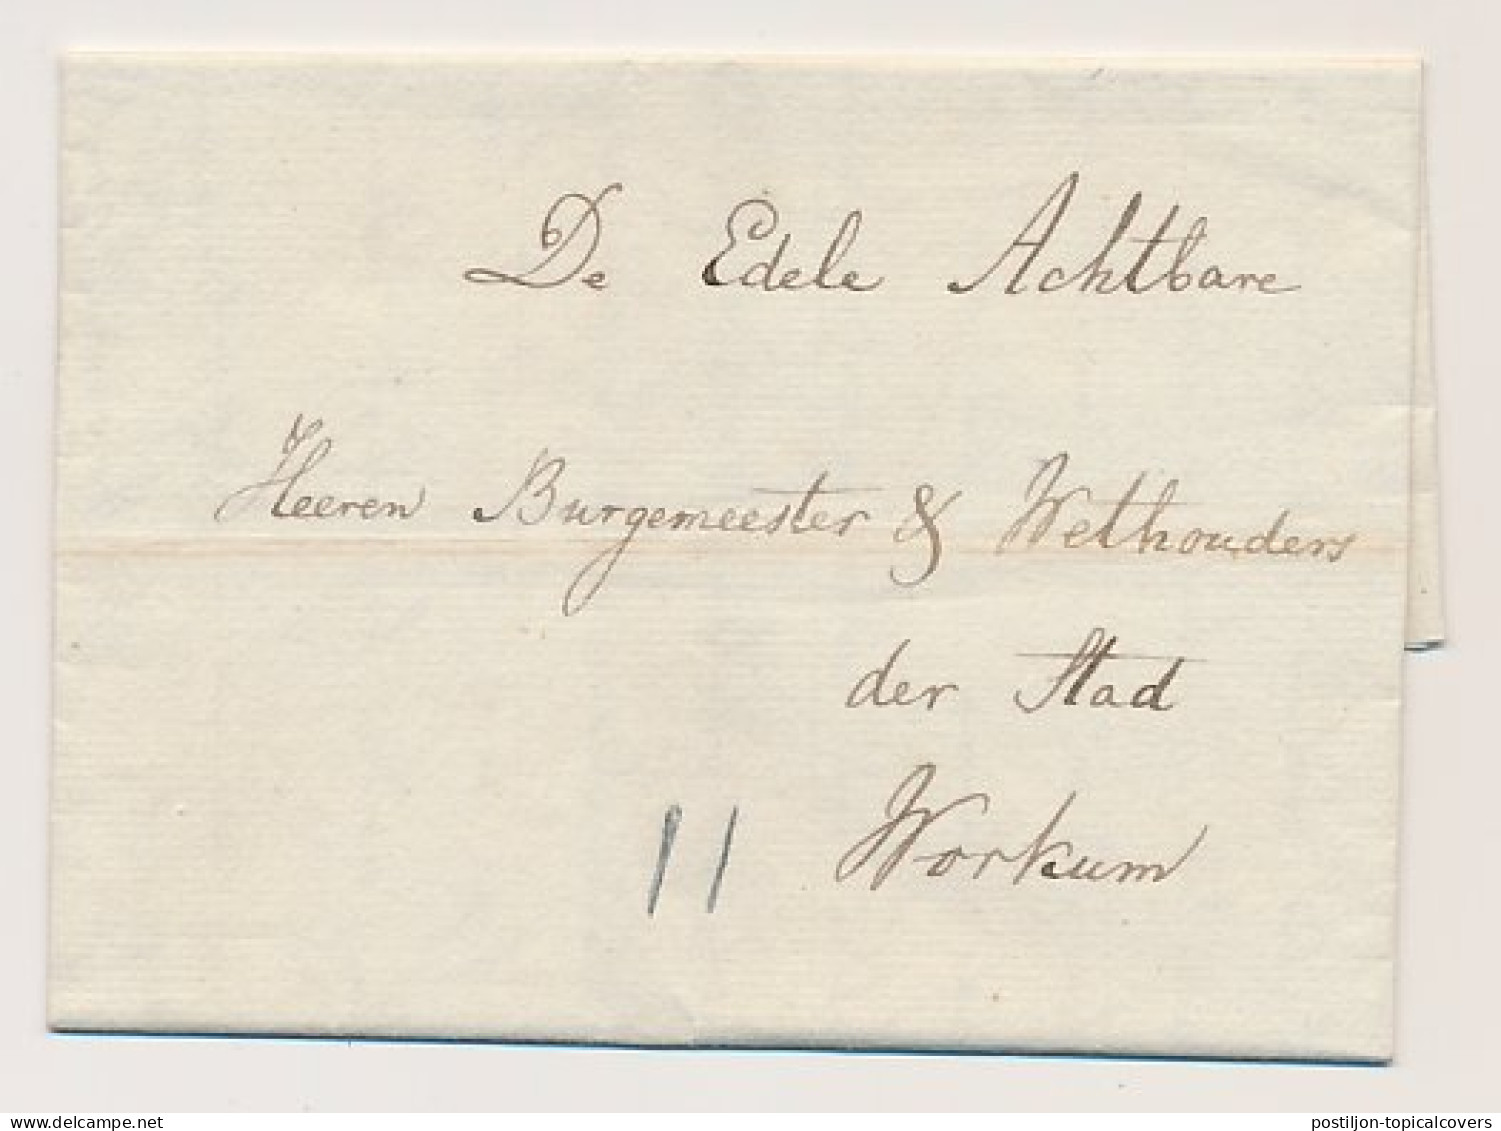 De Edele Achtbare
Heeren Burgemeester & Wethouders
der Stad
Workum
11
delcampe.net
postiljon-topicalcovers